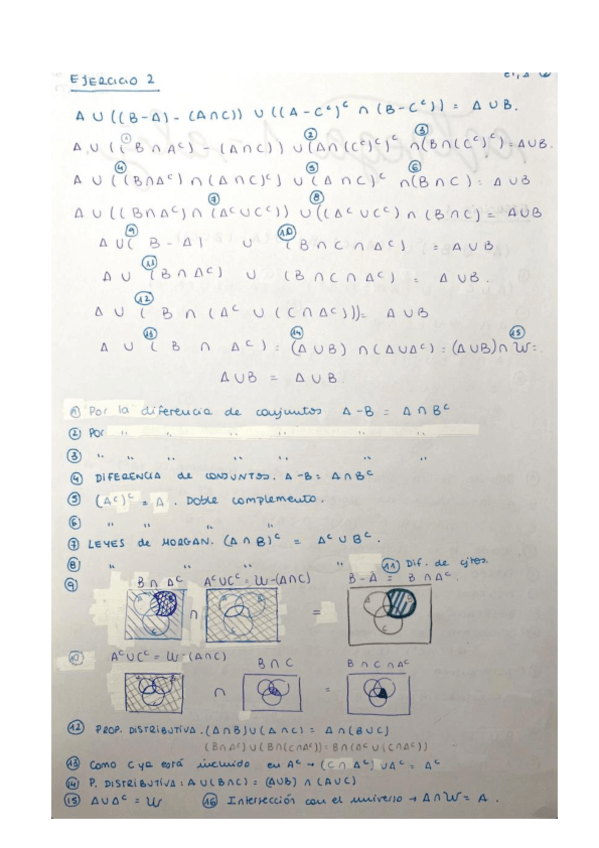 EJERCICIO 2
A ∪ ((B-A) - (A∩C)) ∪ ((A-Cᶜ)ᶜ ∩ (B-Cᶜ)) = A∪B.
① ② ③
A ∪ ((B∩Aᶜ) - (A∩C)) ∪ (A∩(Cᶜ)ᶜ)ᶜ ∩(B∩(Cᶜ)ᶜ) = A∪B.
④ ⑤ ⑥
A ∪ ((B∩Aᶜ) ∩ (A∩C)ᶜ) ∪ (A∩C)ᶜ ∩(B∩C) = A∪B
⑦ ⑧
A ∪ ((B∩Aᶜ) ∩ (Aᶜ∪Cᶜ)) ∪ ((Aᶜ∪Cᶜ) ∩ (B∩C) = A∪B
⑨ ⑩
A∪( B-A) ∪ (B∩C∩Aᶜ) = A∪B
⑪
A ∪ (B∩Aᶜ) ∪ (B∩C∩Aᶜ) = A∪B.
⑫
A ∪ (B ∩ (Aᶜ ∪ (C∩Aᶜ))= A∪B
⑬ ⑭ ⑮
A ∪ ( B ∩ Aᶜ) = (A∪B) ∩(A∪Aᶜ) = (A∪B)∩ U =
A∪B = A∪B.
① Por la diferencia de conjuntos A-B = A∩Bᶜ
② Por " " " " " "
③ " " " " " "
④ DIFERENCIA de CONJUNTOS. A-B = A∩Bᶜ
⑤ (Aᶜ)ᶜ = A. Doble complemento.
⑥ " " " "
⑦ LEYES de MORGAN. (A∩B)ᶜ = Aᶜ∪Bᶜ.
⑧ " " " " ⑪ Dif. de cjtos.
⑨ B∩Aᶜ Aᶜ∪Cᶜ = U-(A∩C) B-A = B∩Aᶜ.
∩ =
⑩ Aᶜ∪Cᶜ = U-(A∩C) B∩C B∩C∩Aᶜ
∩ =
⑫ PROP. DISTRIBUTIVA. (A∩B)∪(A∩C) = A∩(B∪C)
(B∩Aᶜ)∪(B∩(C∩Aᶜ)) = B∩(Aᶜ∪(C∩Aᶜ))
⑬ Como C ya está incluido en Aᶜ → (C∩Aᶜ)∪Aᶜ = Aᶜ
⑭ P. DISTRIBUTIVA: A∪(B∩C) = (A∪B)∩(A∪C)
⑮ A∪Aᶜ = U ⑯ Intersección con el universo → A∩U = A.